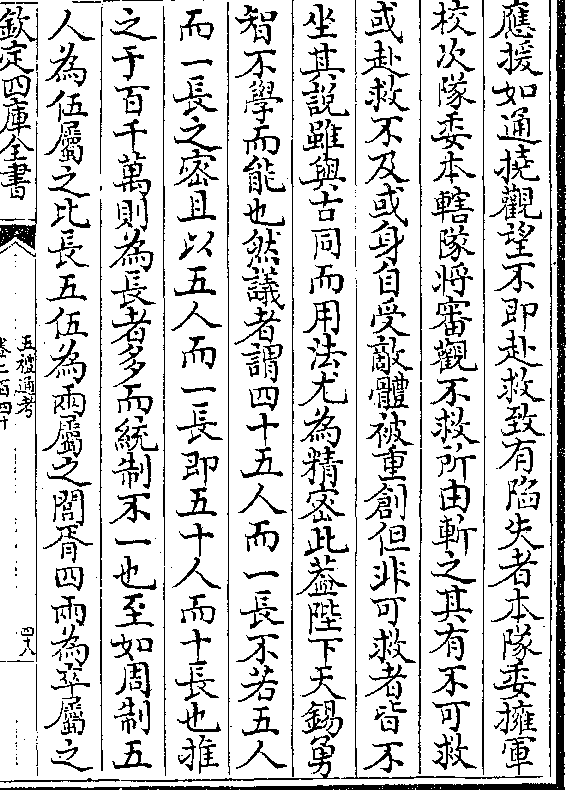 應援如逗撓觀望不即赴救致有陷失者本隊委擁軍
校次隊委本轄隊將審觀不救所由斬之其有不可救
或赴救不及或身自受敵體被重創但非可救者皆不
坐其說雖與古同而用法尤為精密此葢陛下天錫勇
智不學而能也然議者謂四十五人而一長不若五人
而一長之密且以五人而一長即五十人而十長也推
之于百千萬則為長者多而統制不一也至如周制五
人為伍屬之比長五伍為兩屬之閭胥四兩為卒屬之
欽定四庫全書
五禮通考
卷二百四十
四八